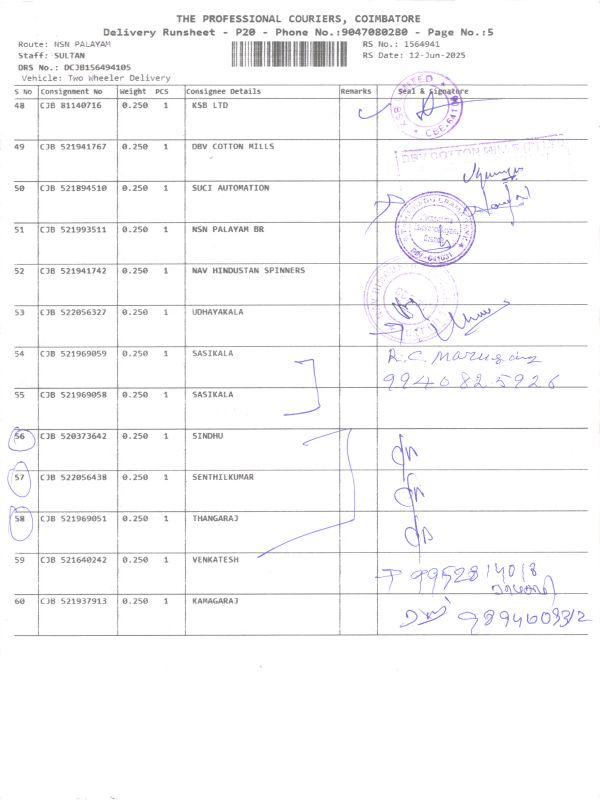 THE PROFESSIONAL COURIERS, COIMBATORE
Delivery Runsheet - P20 - Phone No.:9047080280 - Page No.:5
Route: NSN PALAYAM RS No.: 1564941
Staff: SULTAN RS Date: 12-Jun-2025
DRS No.: DCJB156494105
Vehicle: Two Wheeler Delivery
S No Consignment No Weight PCS Consignee Details Remarks Seal & Signature
48 CJB 81140716 0.250 1 KSB LTD
49 CJB 521941767 0.250 1 DBV COTTON MILLS
DBV COTTON MILLS
50 CJB 521894510 0.250 1 SUCI AUTOMATION
51 CJB 521993511 0.250 1 NSN PALAYAM BR
52 CJB 521941742 0.250 1 NAV HINDUSTAN SPINNERS
53 CJB 522056327 0.250 1 UDHAYAKALA
54 CJB 521969059 0.250 1 SASIKALA R.C.
55 CJB 521969058 0.250 1 SASIKALA 9940825926
56 CJB 520373642 0.250 1 SINDHU
57 CJB 522056438 0.250 1 SENTHILKUMAR
58 CJB 521969051 0.250 1 THANGARAJ
59 CJB 521640242 0.250 1 VENKATESH 9952814018
60 CJB 521937913 0.250 1 KAMAGARAJ